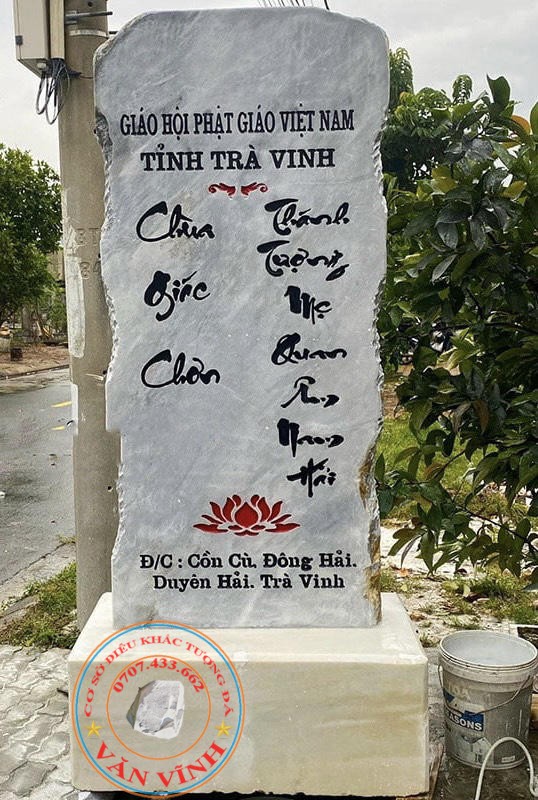 GIÁO HỘI PHẬT GIÁO VIỆT NAM
TỈNH TRÀ VINH
Chùa
Giác
Chơn
Thánh
Tượng
Mẹ
Quan
Âm
Nam
Hải
Đ/C : Cồn Cù, Đông Hải.
Duyên Hải. Trà Vinh
CƠ SỞ ĐIÊU KHẮC TƯỢNG ĐÁ
0707.433.662
VĂN VĨNH
ASONS